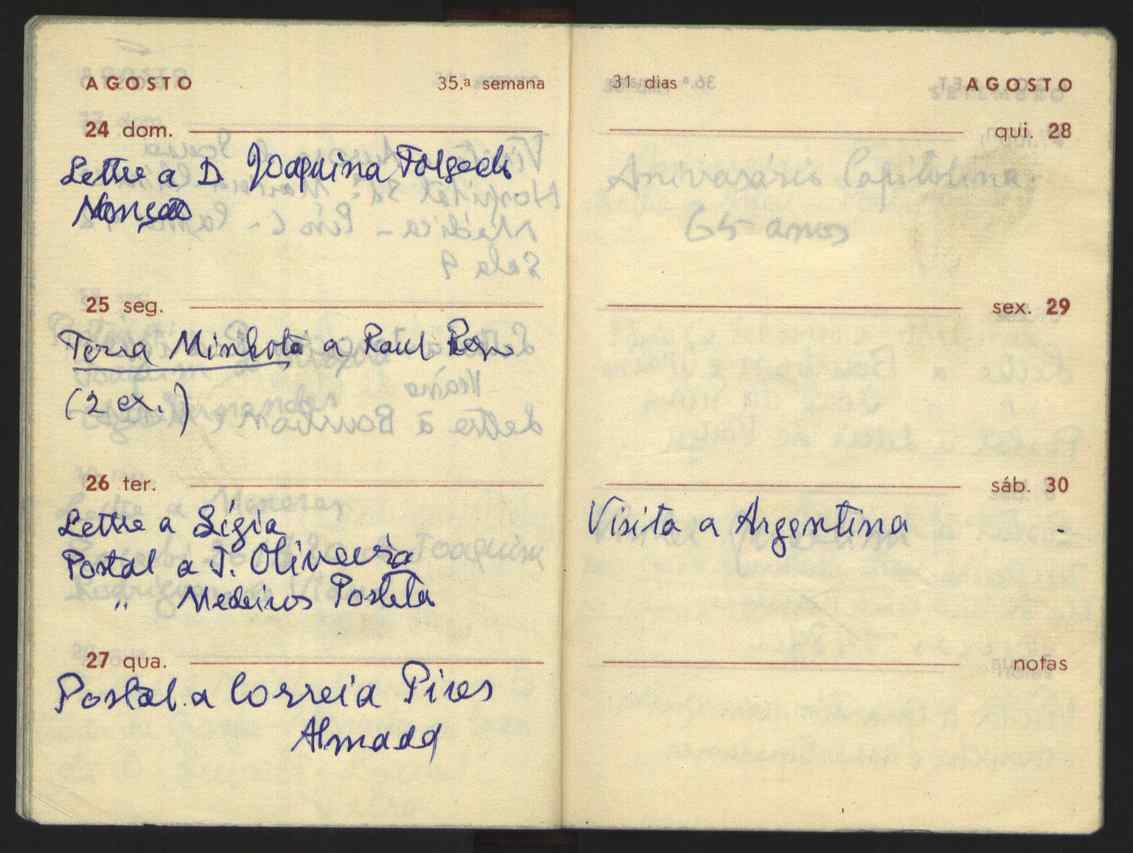 AGOSTO 35.ª semana
24 dom.
Lettre a D. Joaquina Folgado
Monção
25 seg.
Terra Minhota a Raul Rego
(2 ex.)
26 ter.
Lettre a Lígia
Postal a J. Oliveira
" Medeiros Portela
27 qua.
Postal a Correia Pires
Almada
31 dias AGOSTO
qui. 28
Aniversário Capitolina
65 anos
sex. 29
sáb. 30
Visita a Argentina
notas